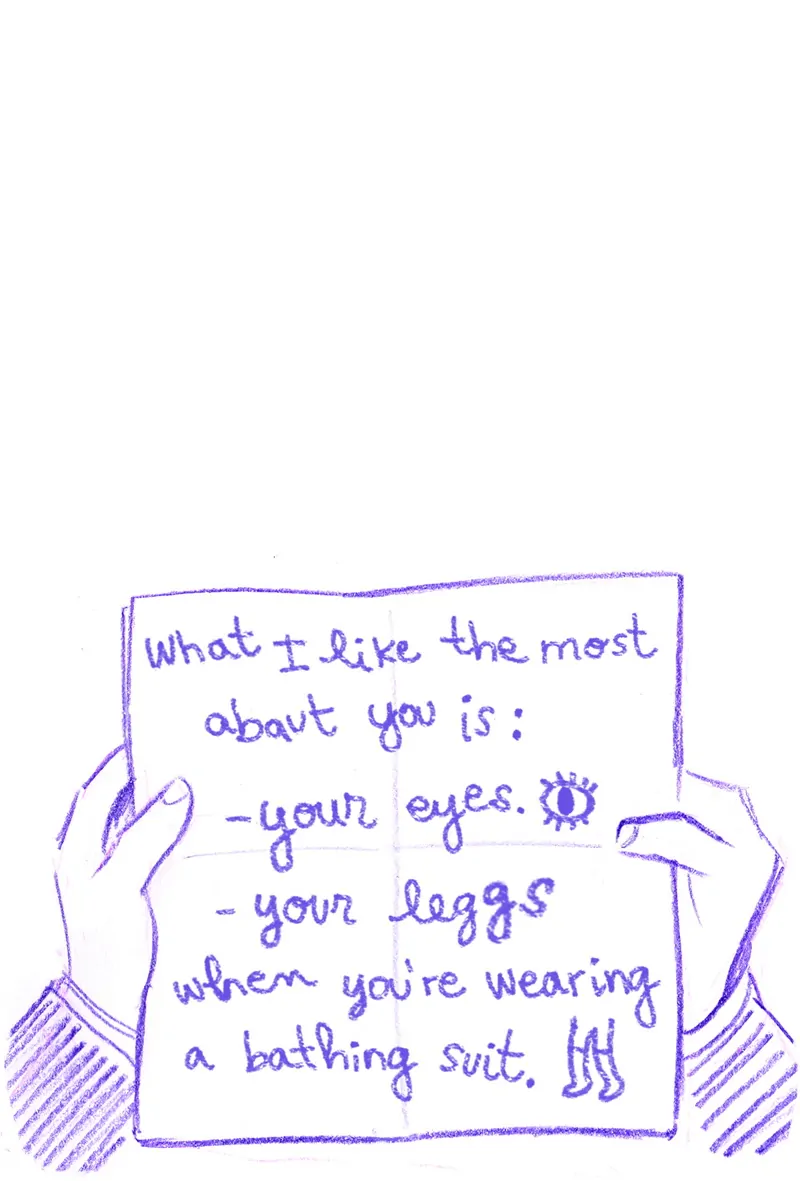 What I like the most
about you is :
- your eyes.
- your leggs
when you're wearing
a bathing suit.